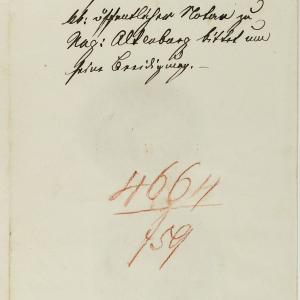 kk: öffentlicher Notar zu
Ung: Altenburg bittet um
seine Beeidigung.—
4664
159